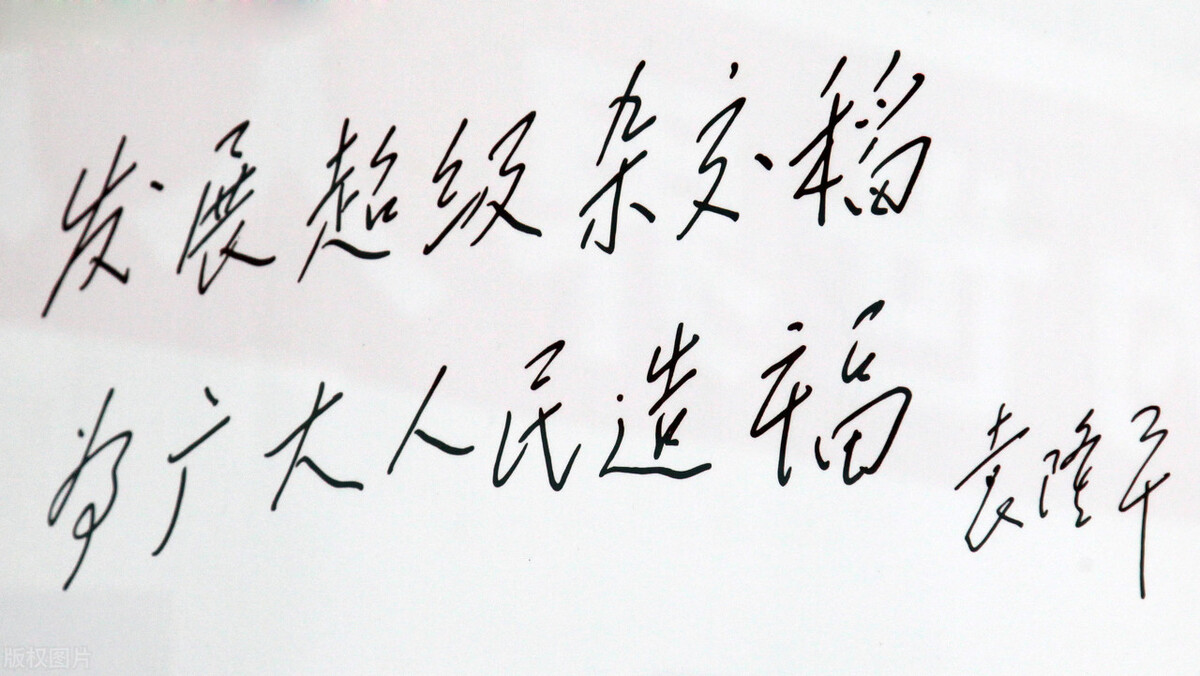 发展超级杂交稻
为广大人民造福
袁隆平
版权图片